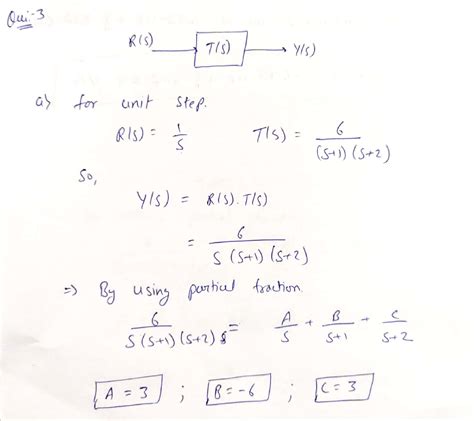 Qui-3
R(s) T(s) Y(s)
a) for unit step.
R(s) = 1/s T(s) = 6/((s+1)(s+2))
So,
Y(s) = R(s). T(s)
= 6/(s(s+1)(s+2))
=> By using partial fraction.
6/(s(s+1)(s+2)) = A/s + B/(s+1) + C/(s+2)
A = 3 ; B = -6 ; C = 3